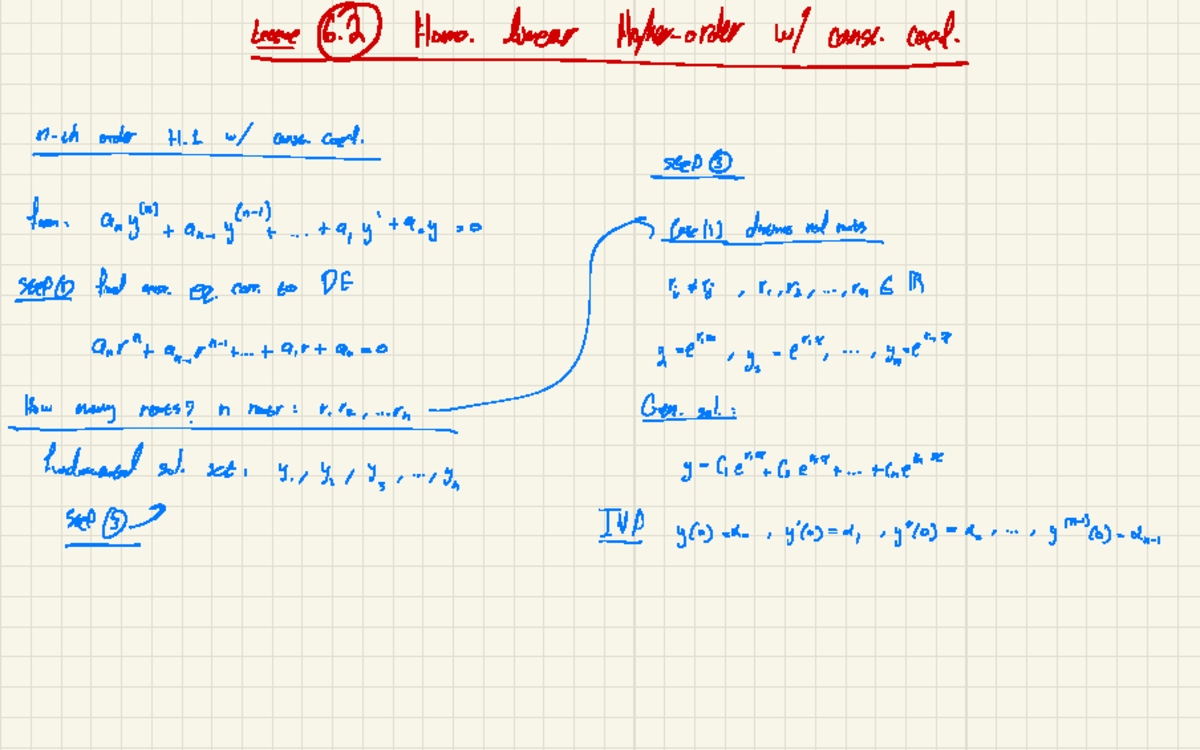 Lecture 6.2 Homo. linear Higher-order w/ const. coef.
n-th order H.L w/ const. coef.
form: aₙy⁽ⁿ⁾ + aₙ₋₁y⁽ⁿ⁻¹⁾ + ... + a₁y' + a₀y = 0
step ① find aux. eq. corr. to DE
aₙrⁿ + aₙ₋₁rⁿ⁻¹ + ... + a₁r + a₀ = 0
How many roots? n roots: r₁ r₂, ... rₙ
fundamental sol. set: y₁, y₂, y₃, ..., yₙ
step ③
step ③
Case (1) distinct real roots
rᵢ ≠ rⱼ , r₁, r₂, ..., rₙ ∈ ℝ
Gen. sol.:
y = C₁e^{r₁x} + C₂e^{r₂x} + ... + Cₙe^{rₙx}
IVP y(0) = α₀ , y'(0) = α₁ , y''(0) = α₂ , ..., y⁽ⁿ⁻¹⁾(0) = αₙ₋₁